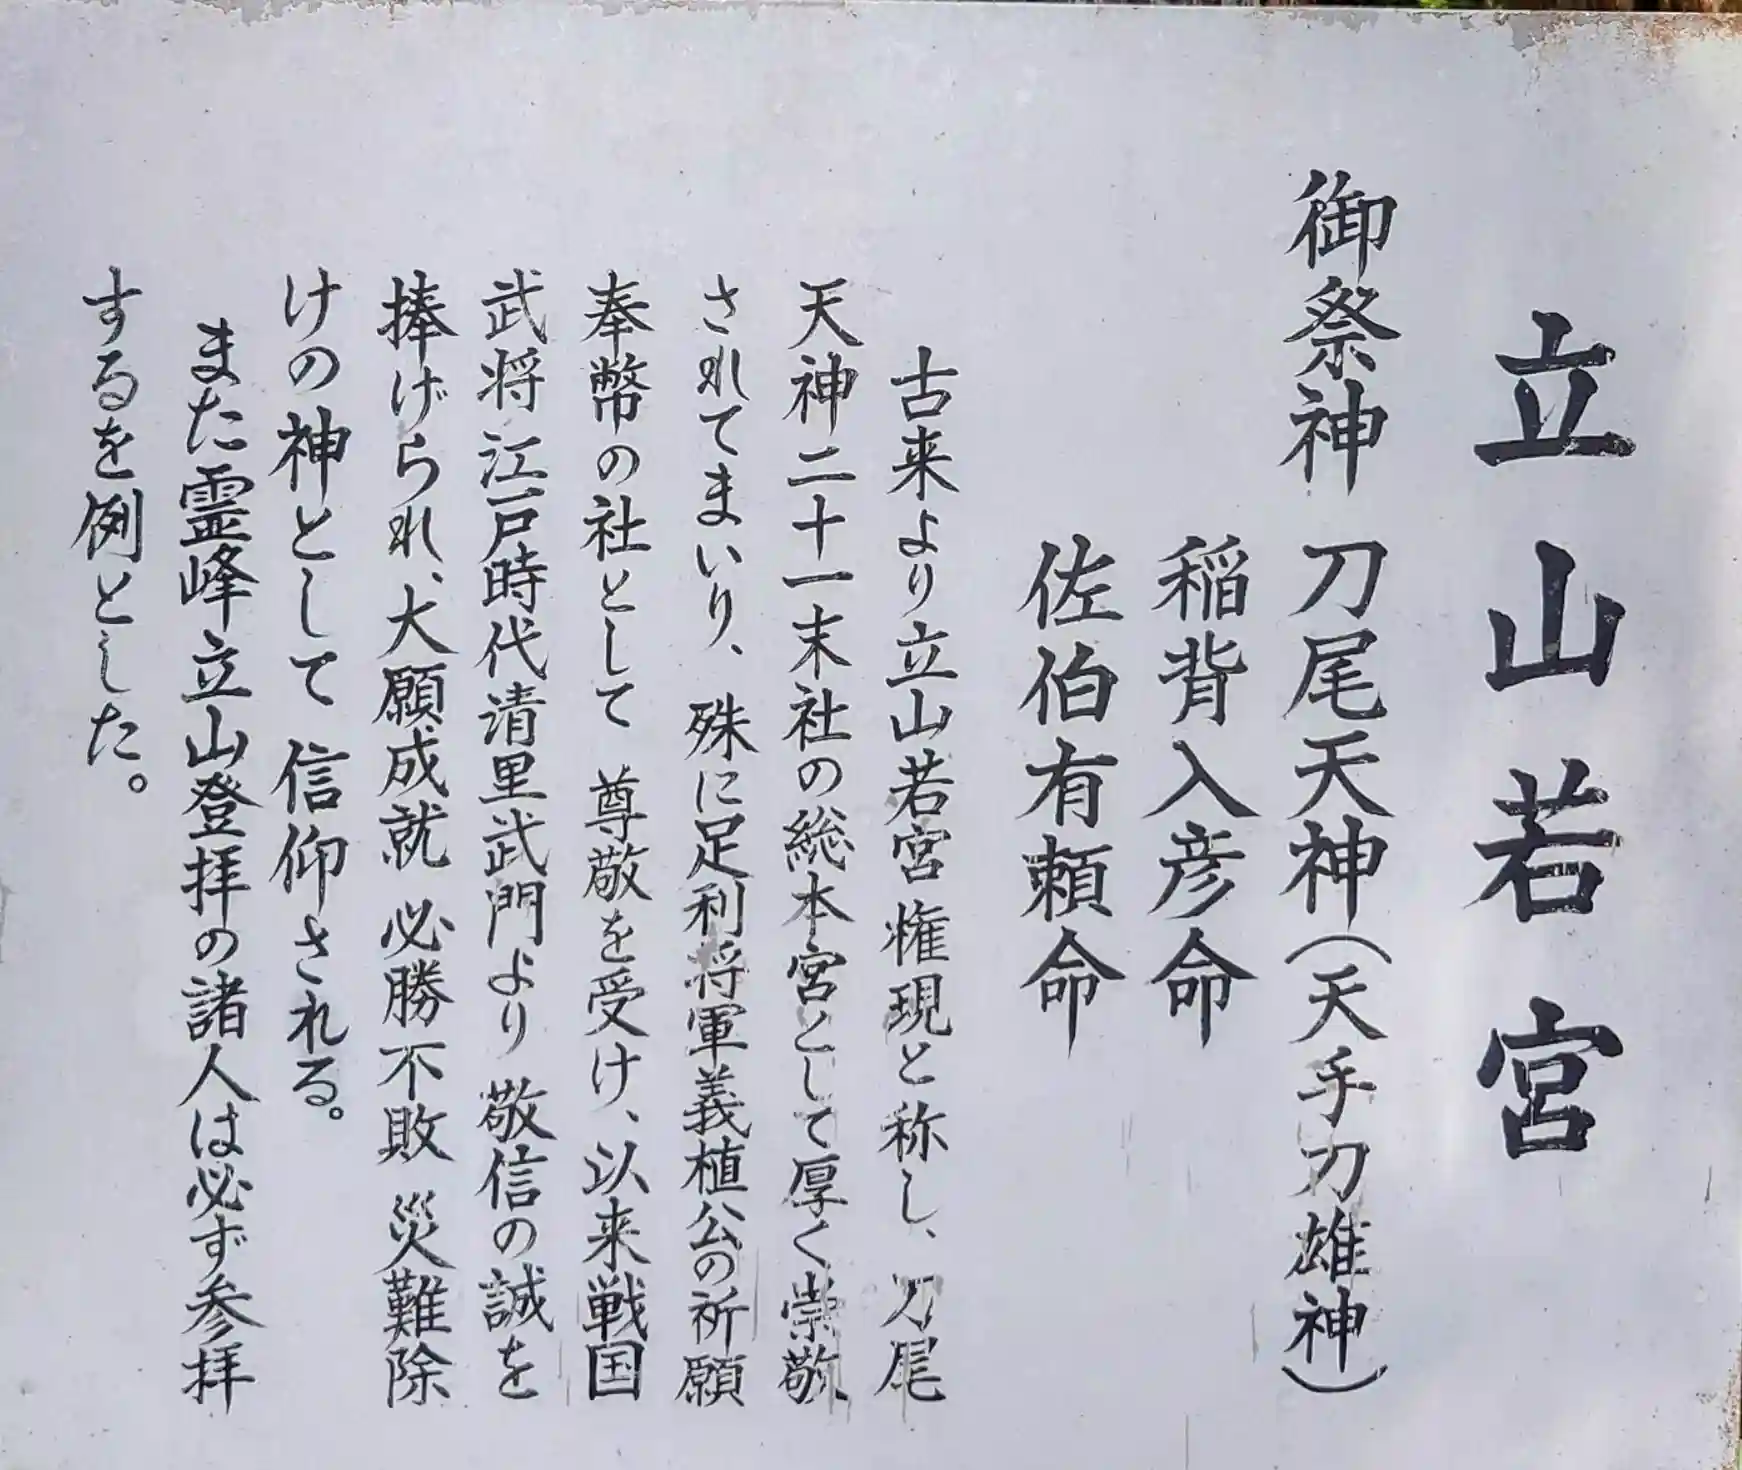 立山若宮
御祭神 刀尾天神(天手力雄神)
稲背入彦命
佐伯有頼命
古来より立山若宮権現と称し、刀尾
天神二十一末社の総本宮として厚く崇敬
されてまいり、殊に足利将軍義植公の祈願
奉幣の社として 尊敬を受け、以来戦国
武将江戸時代清里武門より 敬信の誠を
捧げられ、大願成就 必勝不敗 災難除
けの神として信仰される。
また霊峰立山登拝の諸人は必ず参拝
するを例とした。